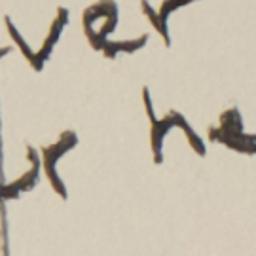 ver
or he